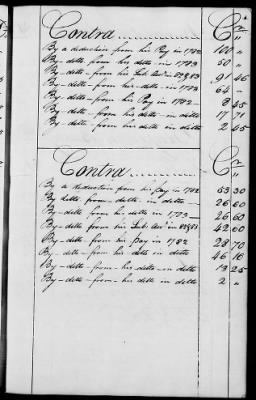 Contra Cr
By a deduction from his Pay in 1782 100 "
By - detto from his detto in 1783 50 "
By - detto - from his Sub. Acct in 82 & 83 91 46
By - detto - from his - detto - in 1783 64 "
By - detto - from his Pay in 1782 8 45
By - detto - from his detto - in detto 17 71
By - detto - from his detto in detto 2 45
Contra Cr
By a deduction from his Pay in 1782 53 30
By detto - from - detto - in detto 26 60
By - detto from his detto in 1783 26 60
By - detto from his Sub. Acct in 82 & 83 42 60
By - detto - from his Pay in 1782 28 70
By - detto - from his detto in detto 46 10
By - detto - from - his - detto - in detto 13 25
By - detto - from - his detto in detto 2 "